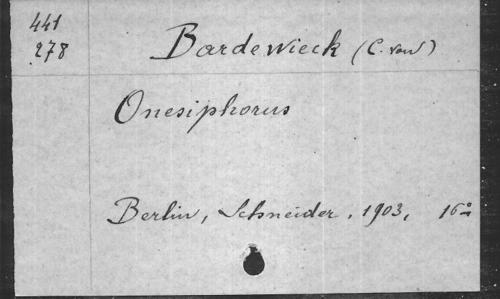 441
278
Bardewieck (C. von)
Onesiphorus
Berlin, Schneider, 1903, 16º